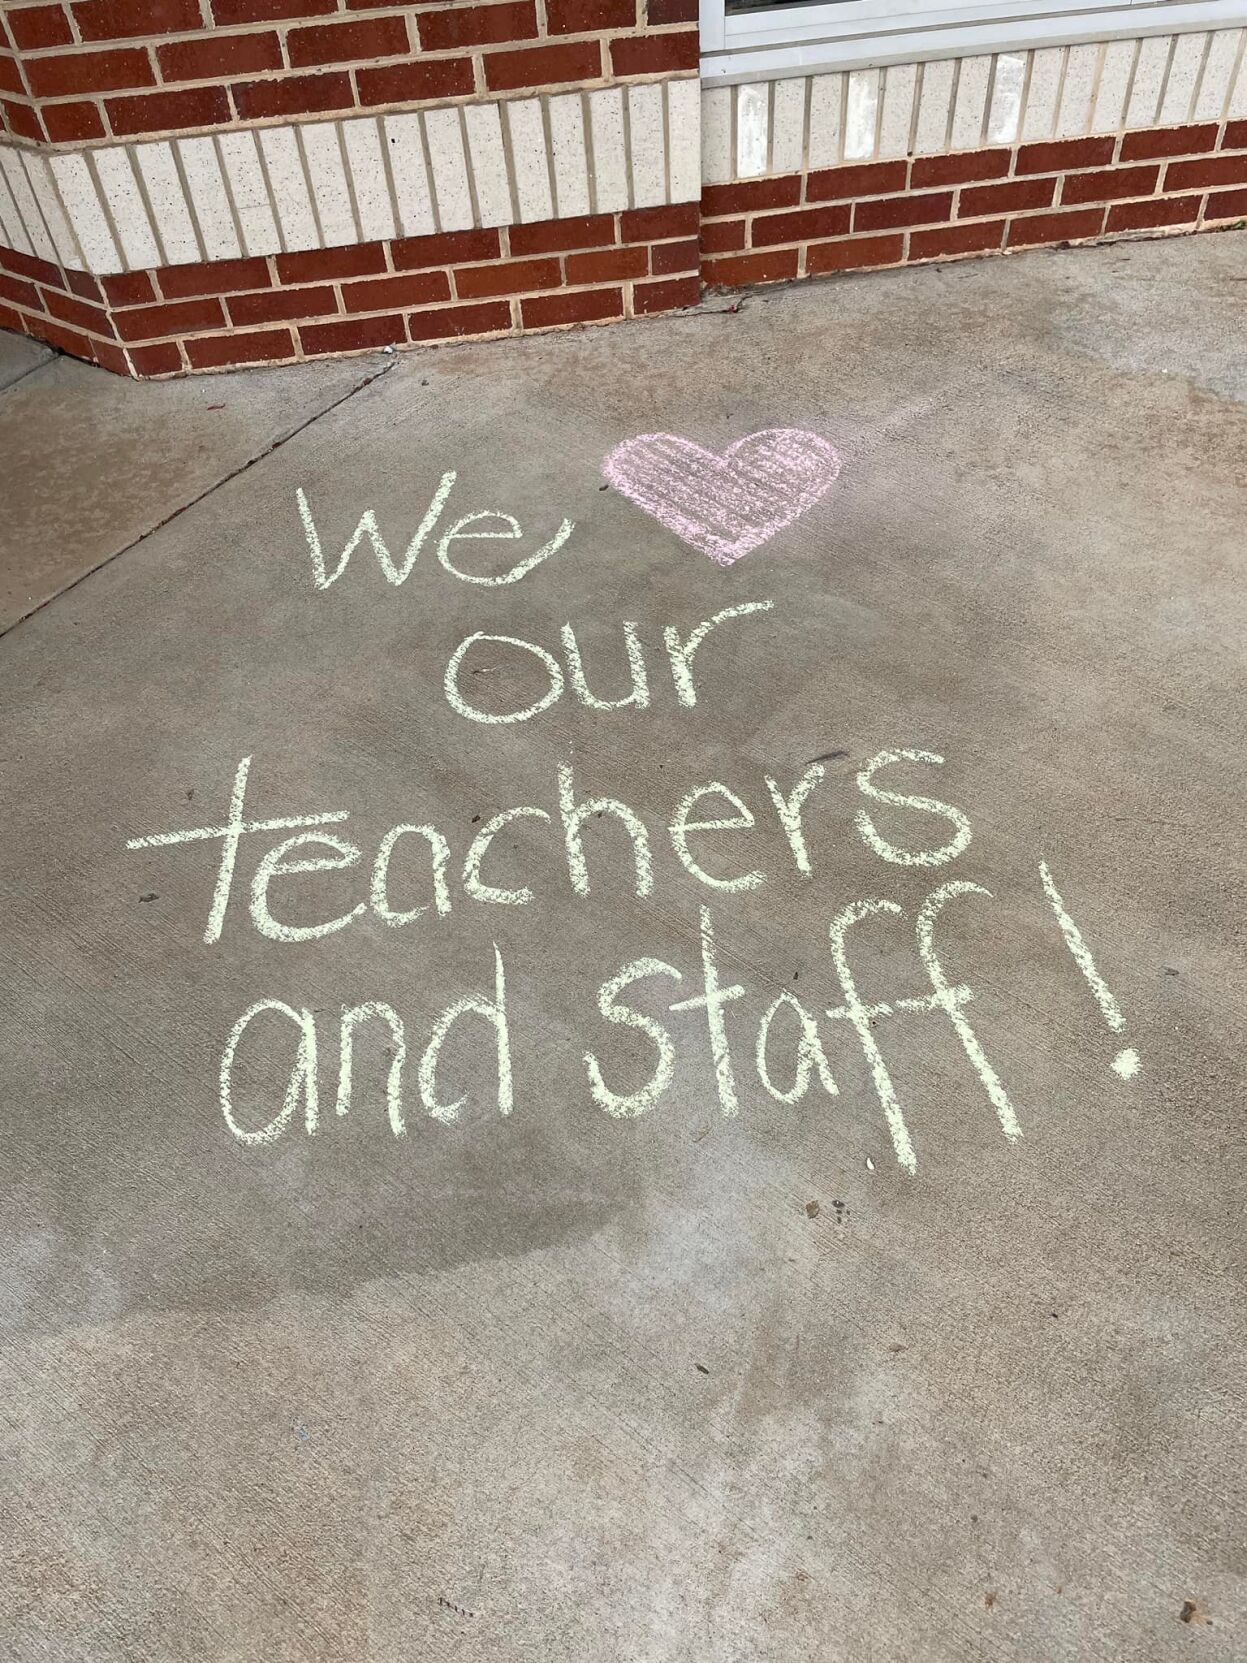 We ❤
our
teachers
and staff!